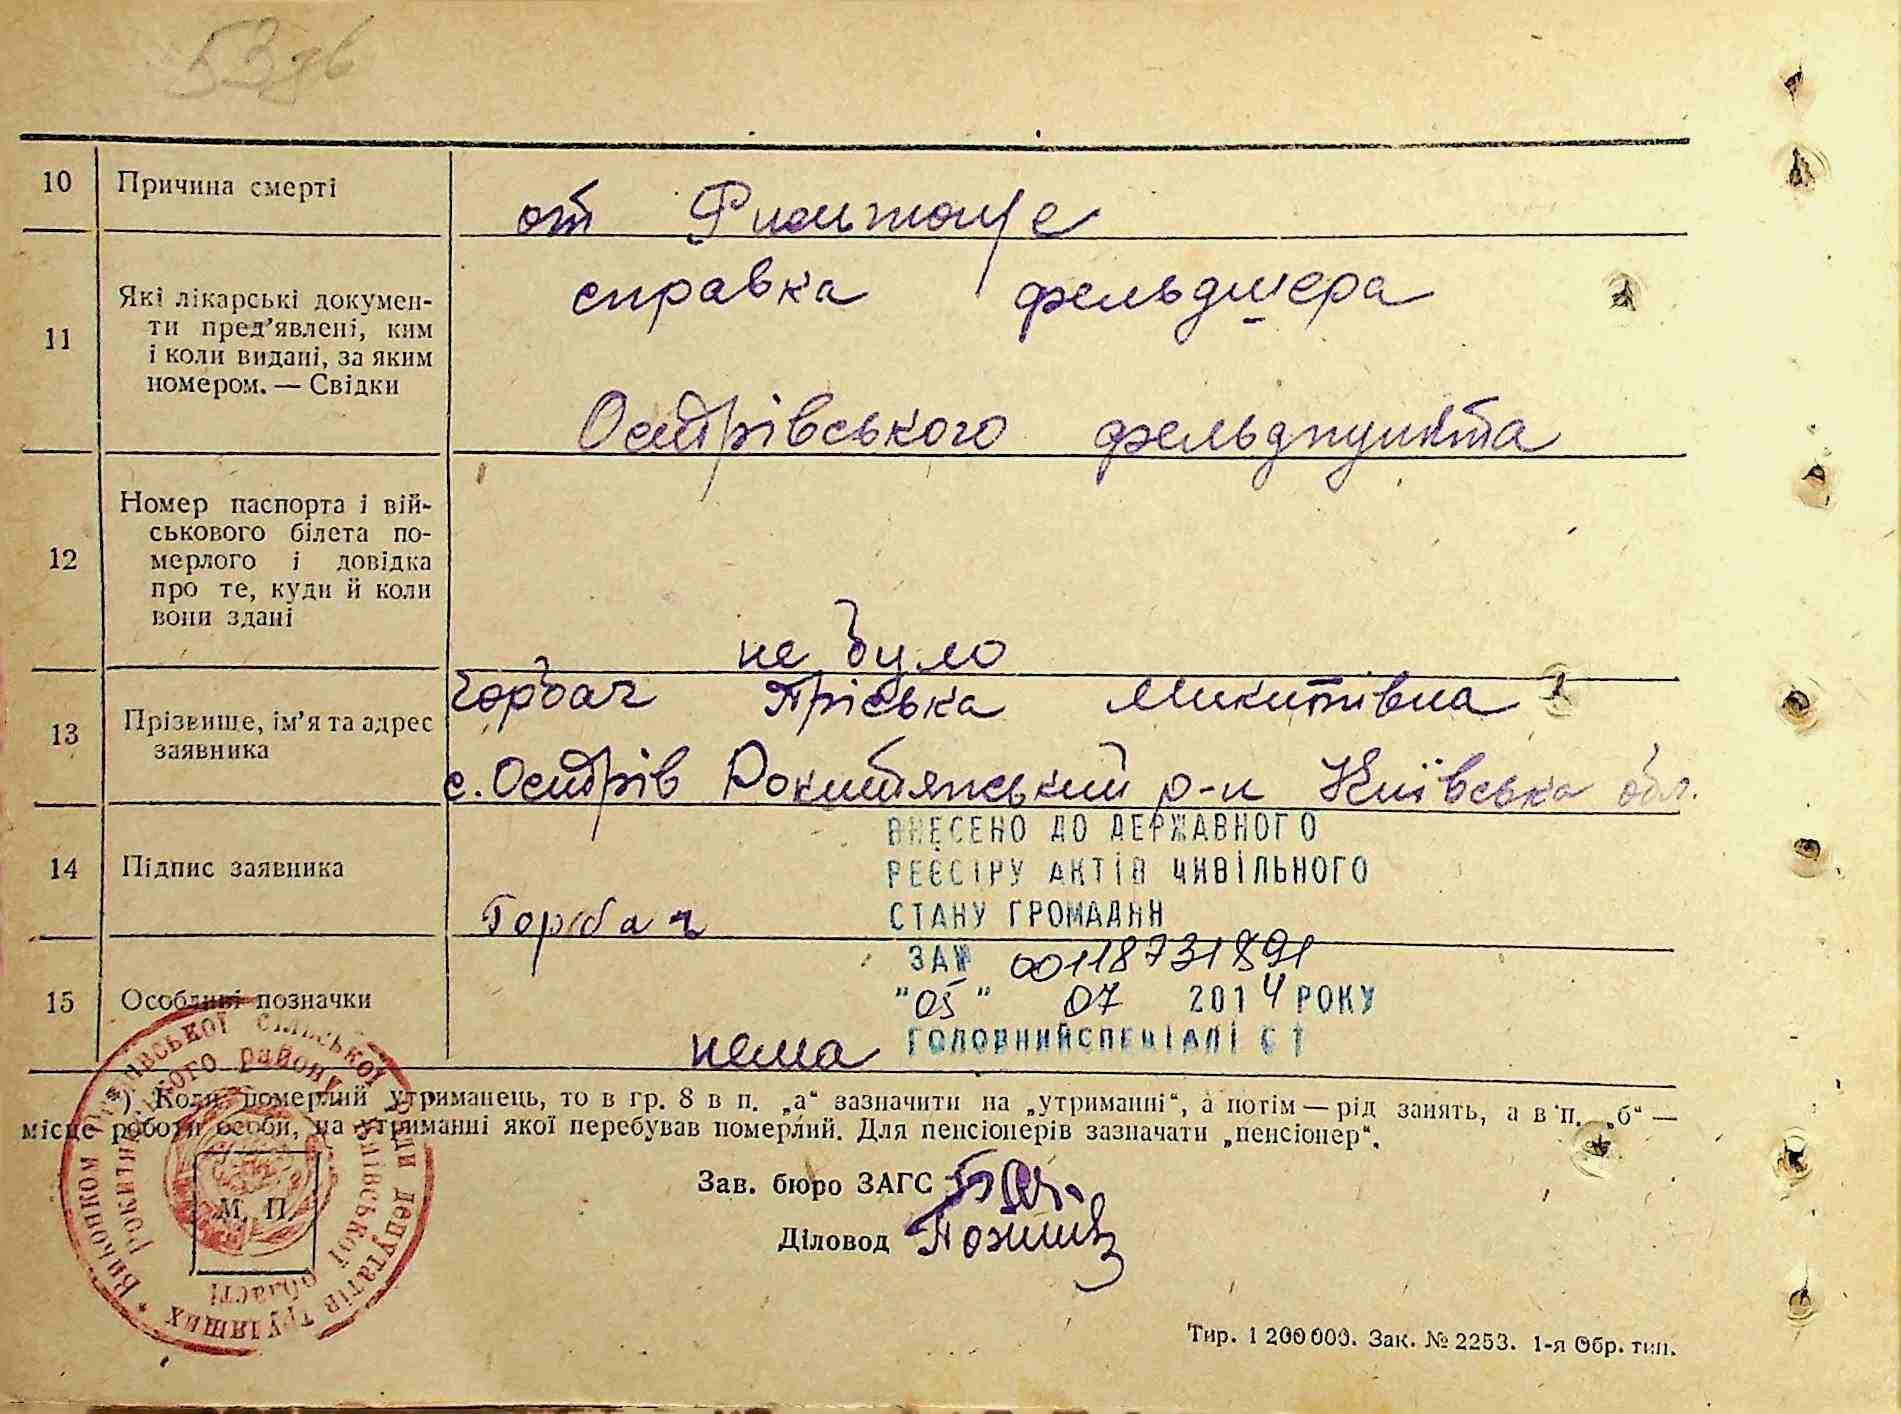 53 зв
10 Причина смерті
от
11 Які лікарські докумен-
ти пред'явлені, ким
і коли видані, за яким
номером. — Свідки
справка фельдшера
Острівського фельдпункта
12 Номер паспорта і вій-
ськового білета по-
мерлого і довідка
про те, куди й коли
вони здані
не було
13 Прізвище, ім'я та адрес
заявника
Горбач Пріська Микитівна
с. Острів Рокитянський р-н Київська обл.
14 Підпис заявника
Горбач
ВНЕСЕНО ДО ДЕРЖАВНОГО
РЕЄСТРУ АКТІВ ЦИВІЛЬНОГО
СТАНУ ГРОМАДЯН
ЗА № 00118731891
"05" 07 2014 РОКУ
ГОЛОВНИЙ СПЕЦІАЛІСТ
15 Особливі позначки
нема
) Коли померлий утриманець, то в гр. 8 в п. „а“ зазначити на „утриманні“, а потім — рід занять, а в п. „б“ —
місце роботи особи, на утриманні якої перебував померлий. Для пенсіонерів зазначати „пенсіонер“.
Зав. бюро ЗАГС
Діловод
М. П.
Виконком сільської Ради депутатів трудящих
Рокитнянського району Київської області
Тир. 1 200 000. Зак. № 2253. 1-я Обр. тип.